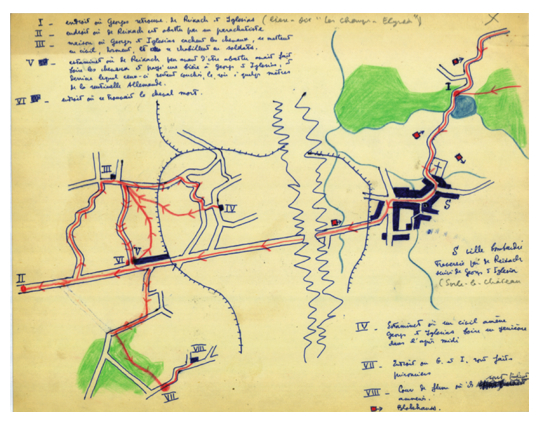 I - endroit où Georges retrouve de Reixach et Iglésias (lieu-dit "les Champs-Elysées")
II - endroit où de Reixach est abattu par un parachutiste
III - maison où Georges et Iglésias cachent les chevaux, se mettent
en civil, dorment, et se rhabillent en soldats.
V - estaminet où de Reixach peu avant d'être abattu avait fait
boire les chevaux et payé une bière à Georges et Iglésia, et
derrière lequel ceux-ci restent couchés, le soir, à quelques mètres
de la sentinelle Allemande.
VI - endroit où se trouvait le cheval mort.
X
I
III
IV
V
VI
II
S
VIII
VII
S ville bombardée
traversée par de Reixach
suivi de Georges et Iglésia
(Solre-le-Château
IV - Estaminet où un civil amène
Georges et Iglésia boire un genièvre
dans l'après midi
VII - Endroit où G. et I. sont faits
prisonniers
VIII - Cour de ferme où ils sont
amenés.
Blockhaus.